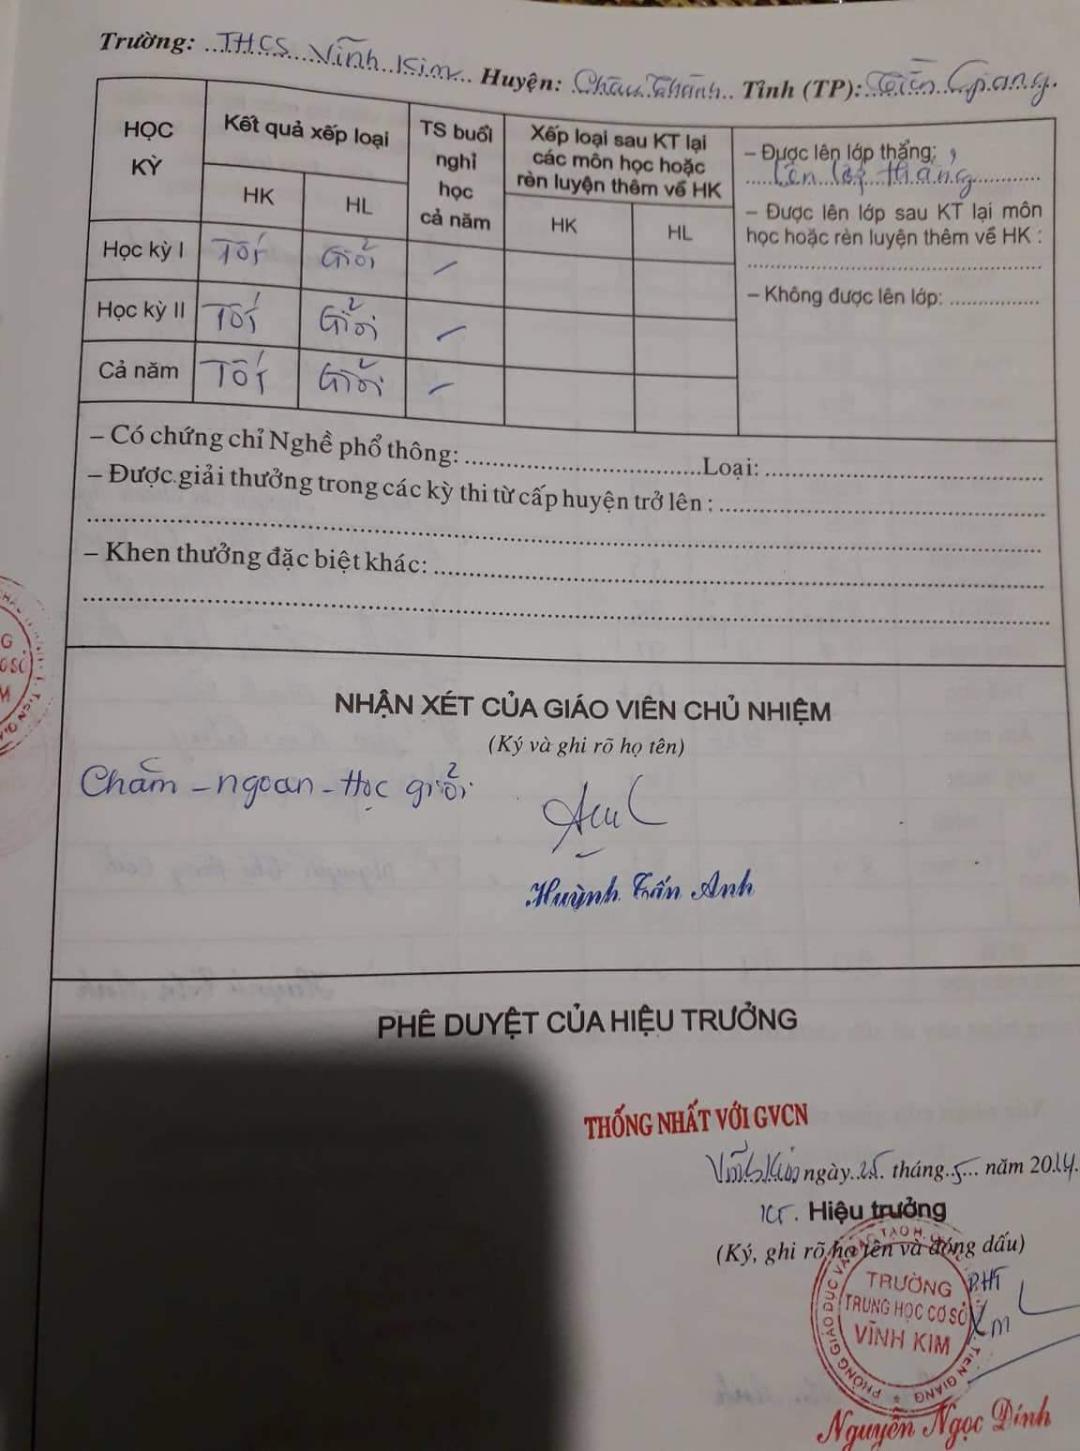 Trường: THCS Vĩnh Kim Huyện: Châu Thành Tỉnh (TP): Tiền Giang
HỌC KỲ
Kết quả xếp loại
HK HL
TS buổi nghỉ học cả năm
Xếp loại sau KT lại các môn học hoặc rèn luyện thêm về HK
HK HL
Học kỳ I Tốt Giỏi –
Học kỳ II Tốt Giỏi –
Cả năm Tốt Giỏi –
– Được lên lớp thẳng:
Lên lớp thẳng
– Được lên lớp sau KT lại môn
học hoặc rèn luyện thêm về HK :
– Không được lên lớp:
– Có chứng chỉ Nghề phổ thông: Loại:
– Được giải thưởng trong các kỳ thi từ cấp huyện trở lên :
– Khen thưởng đặc biệt khác:
NHẬN XÉT CỦA GIÁO VIÊN CHỦ NHIỆM
(Ký và ghi rõ họ tên)
Chăm - ngoan - Học giỏi
Huỳnh Tấn Anh
PHÊ DUYỆT CỦA HIỆU TRƯỞNG
THỐNG NHẤT VỚI GVCN
Vĩnh Kim ngày 25 tháng 5 năm 2014
KT. Hiệu trưởng
(Ký, ghi rõ họ tên và đóng dấu)
PHT
TRƯỜNG
TRUNG HỌC CƠ SỞ
VĨNH KIM
PHÒNG GIÁO DỤC VÀ ĐÀO TẠO TIỀN GIANG
Nguyễn Ngọc Dính